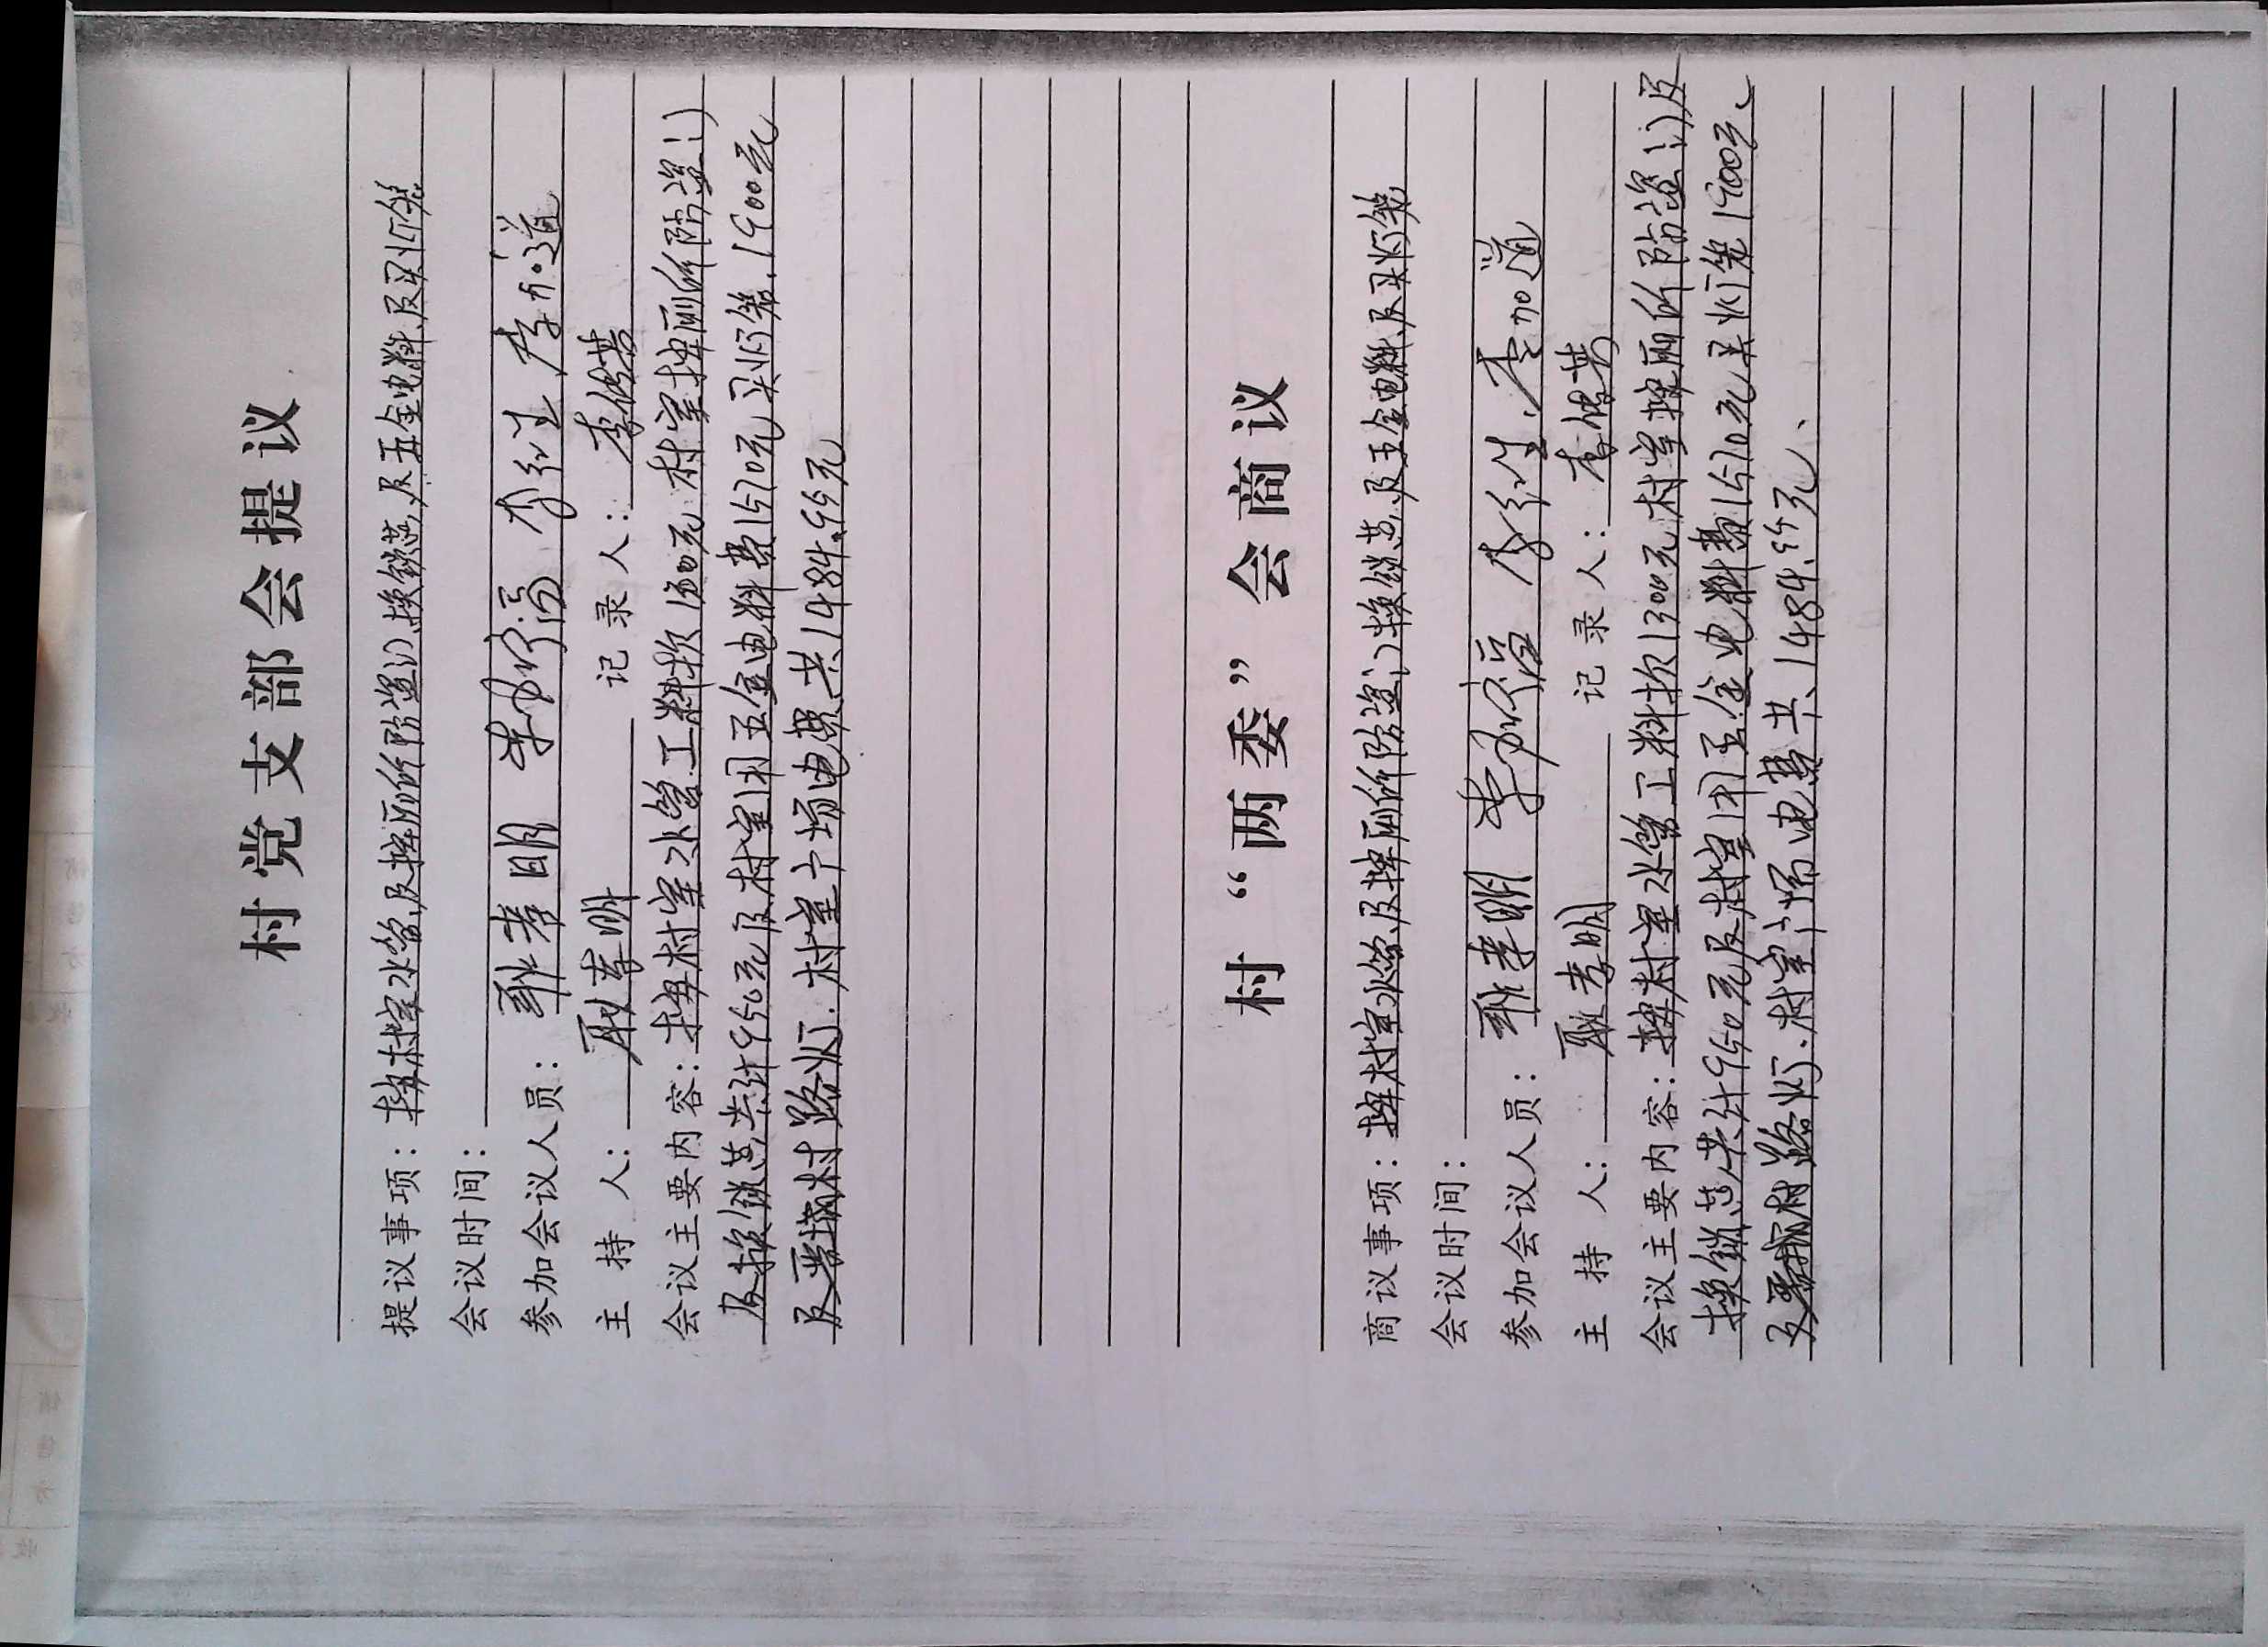 村党支部会提议
提议事项：拆村室水管及择厕所防盗门换锁芯,及五金电料及买灯笼
会议时间：
参加会议人员：耿孝明 李 李红生 李加道
主 持 人：耿孝明 记 录 人：李传英
会议主要内容：村室水管工料款1300元 村室 厕所防盗门
及换锁芯共计950元及村室用五金电料费1570元买灯笼.1900元
及 村路灯.村室广场电费共1484.95元
村“两委”会商议
商议事项：村室水管及 厕所防盗门换锁芯及五金电料及买灯笼
会议时间：
参加会议人员：耿孝明 李 李红生.李加道
主 持 人：耿孝明 记 录 人：李传英
会议主要内容：村室水管工料款1300元村室 厕所防盗门及
换锁芯共计950元及村室用五金电料费1570元买灯笼1900元、
及 村路灯.村室广场电费共1484.95元、